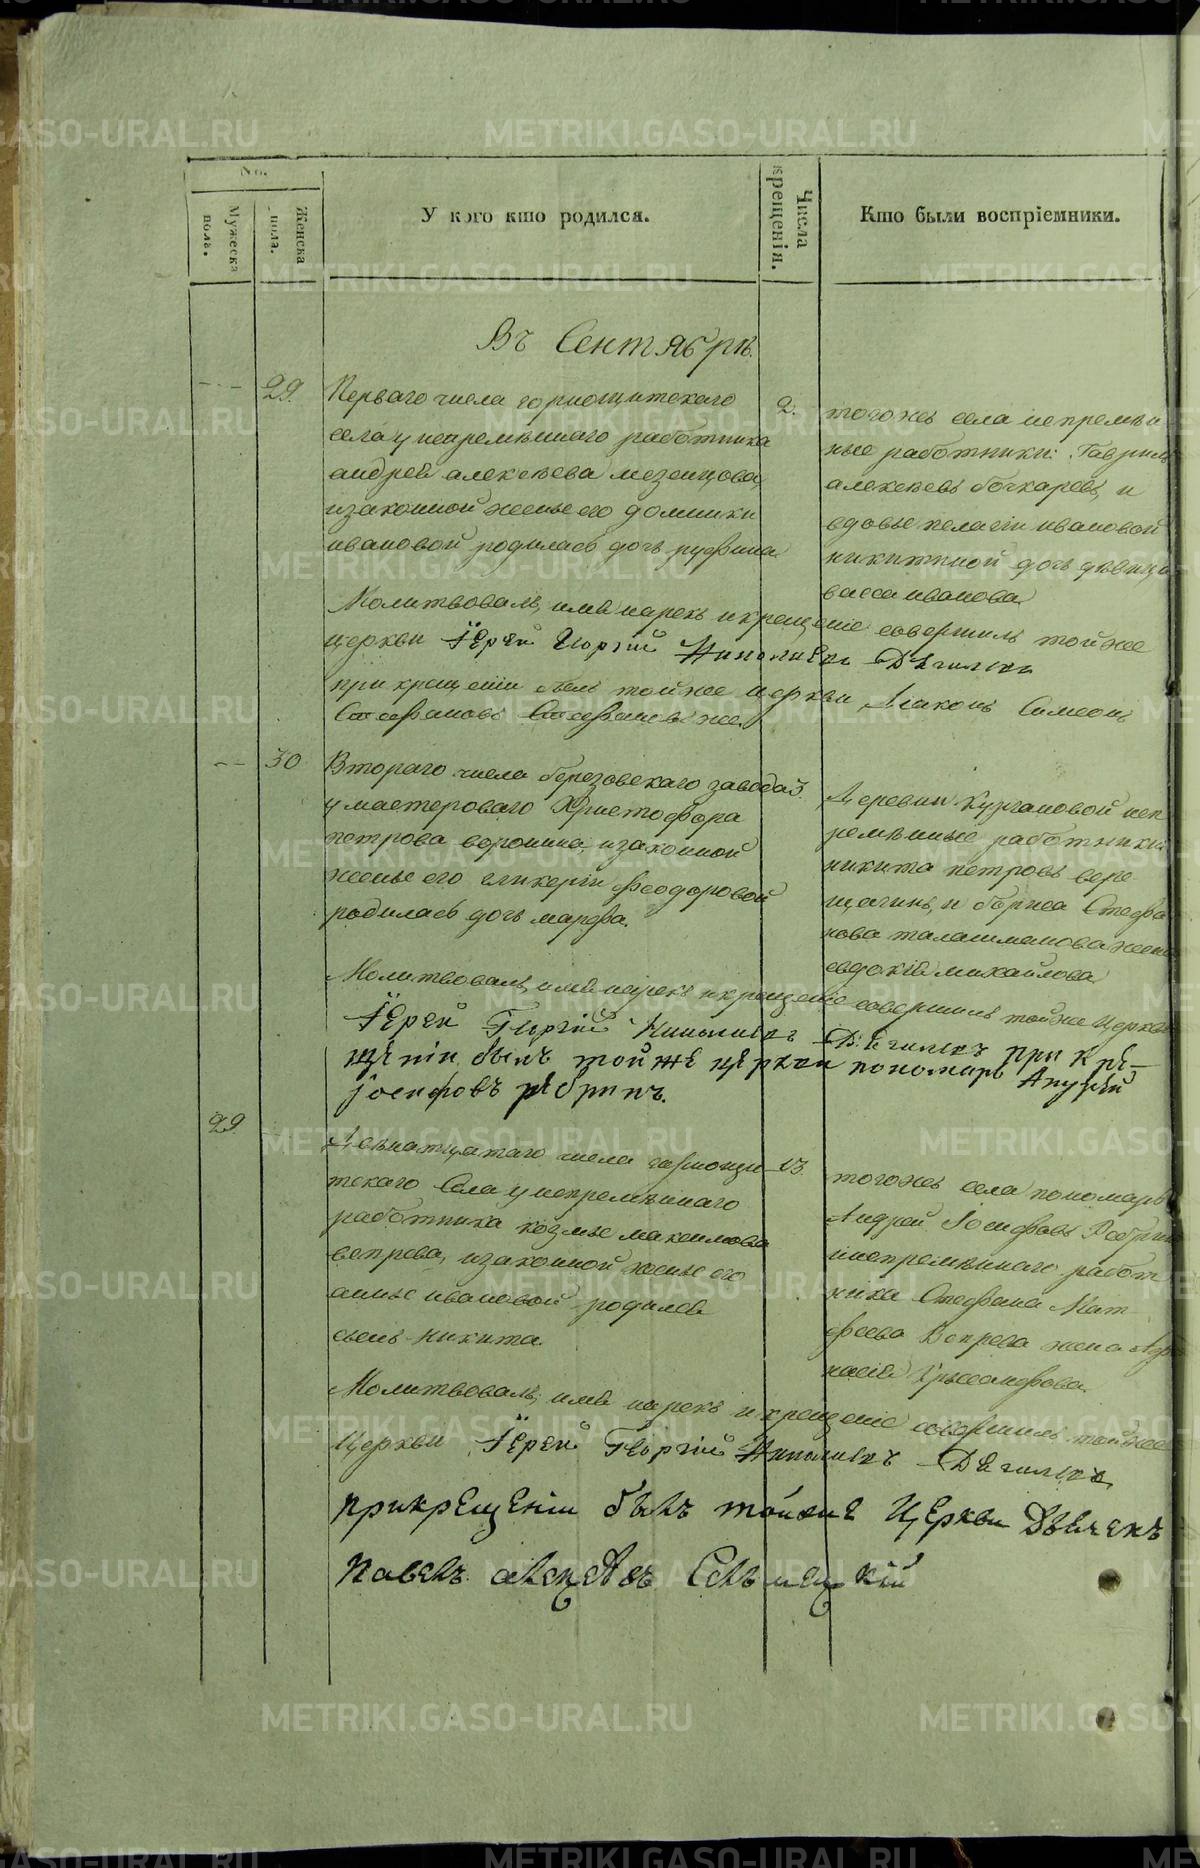 No.
Мужеска пола.
Женска пола.
У кого кто родился.
Числа крещенія.
Кто были воспріемники.
Въ Сентябрѣ.
29.
Перваго числа горнощитскаго
села у непремѣннаго работника
андрея алексѣева мезенцова,
изаконной жены его домники
ивановой родилась дочь руфина
2.
тогожъ села непремѣн
ные работники: Гаврилъ
алексѣевъ бочкаревъ, и
вдовы пелагіи ивановой
никитиной дочь дѣвица
васса иванова
Молитвовалъ, имя нарекъ и крещеніе совершилъ тойже
церкви Іерей Георгій
при крещеніи былъ тойже церкви Діаконъ Симеонъ
Стефановъ Стефановъ же.
30
Втораго числа березовскаго завода
у мастероваго Христофора
петрова воронина, изаконной
жены его гликеріи Феодоровой
родилась дочь марфа.
3.
Деревни Кургановой неп
ремѣнные работники
никита петровъ вере
щагинъ, и бориса Стефа
нова талашманова жена
евдокія михайлова
Молитвовалъ, имя нарекъ и крещеніе совершилъ тойже Церкви
Іерей Георгій при кре-
щеніи былъ тойже церкви пономарь Андрей
Іосифовъ ребринъ.
29.
Девнатцатаго числа горнощи-
тскаго Села у непремѣннаго
работника козмы максимова
вепрева, изаконной жены его
анны ивановой родился
сынъ никита.
13.
тогожъ села пономарь
Андрей Іосифовъ Ребрин
инепремѣннаго работ
ника Стефана Мат
феева Вепрева жена Афа
насія Хрисанфова.
Молитвовалъ, имя нарекъ и крещеніе совершилъ тойже
Церкви Іерей Георгій
прикрещеніи былъ тойже Церкви Дьячекъ
Павелъ